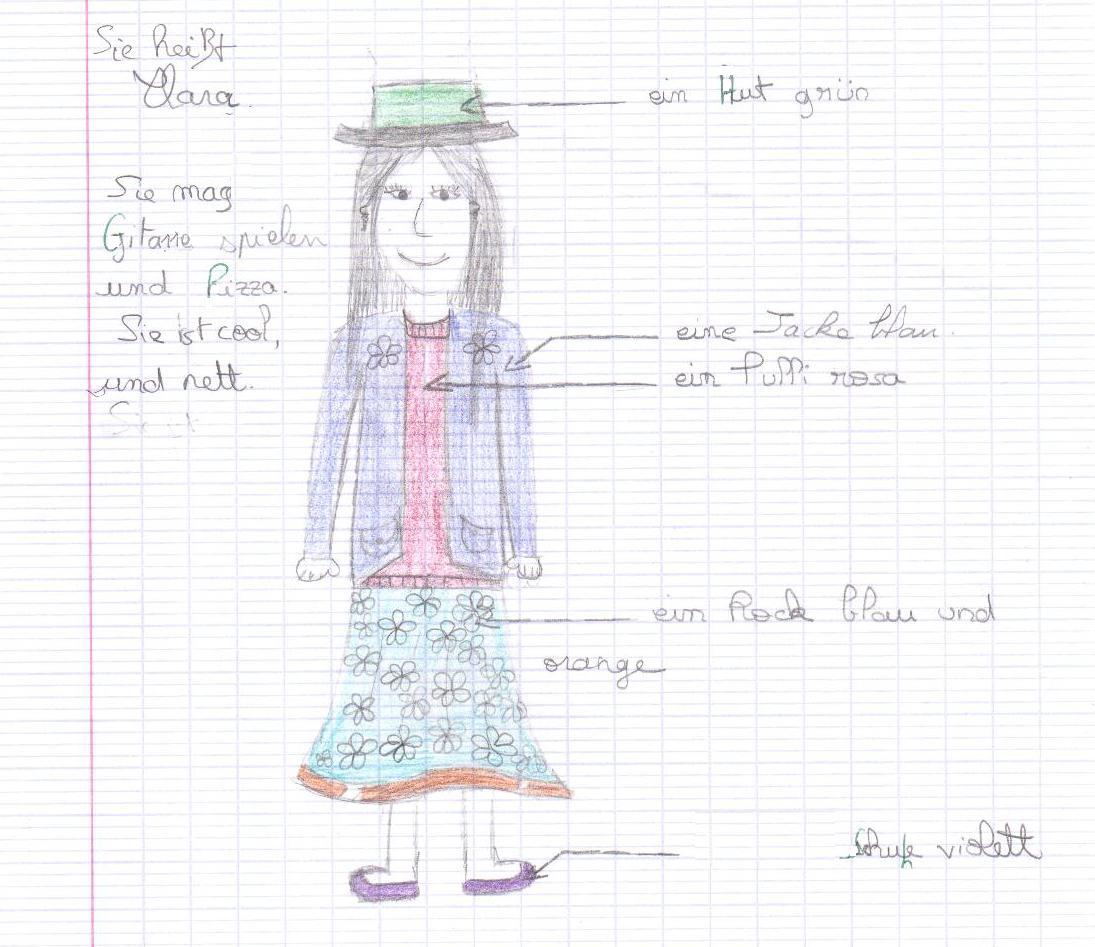 Sie heißt
Clara.
Sie mag
Gitarre spielen
und Pizza.
Sie ist cool,
und nett.
ein Hut grün
eine Jacke blau.
ein Pulli rosa
ein Rock blau und
orange
Schuhe violett